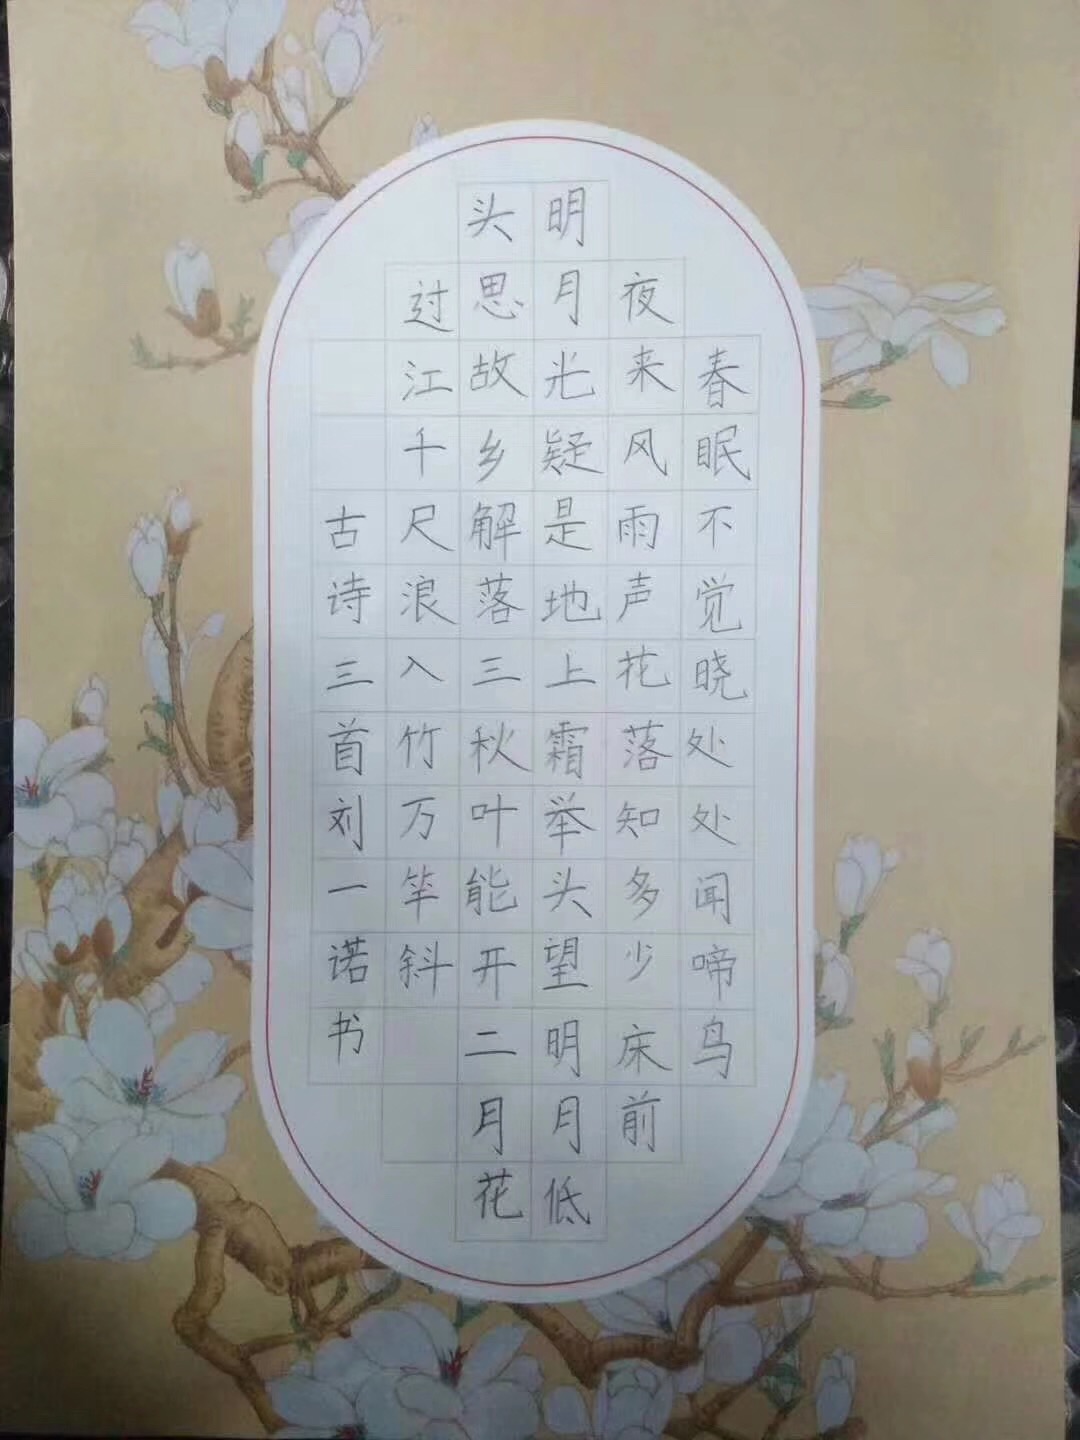 春眠不觉晓处处闻啼鸟
夜来风雨声花落知多少床前
明月光疑是地上霜举头望明月低
头思故乡解落三秋叶能开二月花
过江千尺浪入竹万竿斜
古诗三首刘一诺书